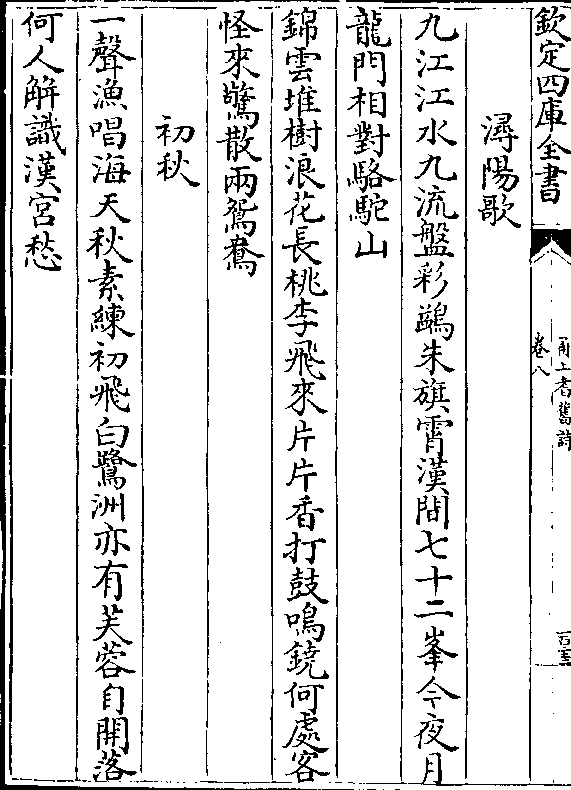 欽定四庫全書
甬上耆舊詩
卷八
潯陽歌
九江江水九流盤彩鷁朱旗霄漢間七十二峯今夜月
龍門相對駱駝山
錦雲堆樹浪花長桃李飛來片片香打鼓鳴鐃何處客
怪來驚散兩鴛鴦
初秋
一聲漁唱海天秋素練初飛白鷺洲亦有芙蓉自開落
何人解識漢宮愁